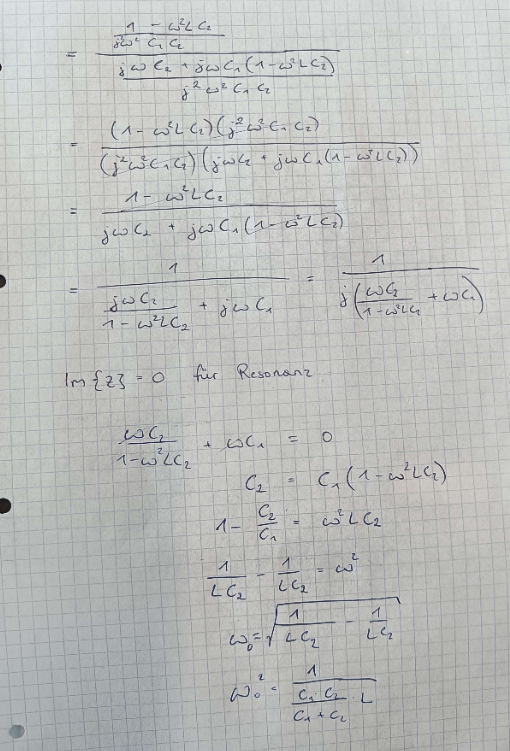 = ((1 - ω²LC₂)/(j²ω² C₁ C₂)) / ((jωC₂ + jωC₁(1-ω²LC₂))/(j²ω²C₁C₂))
= ((1-ω²LC₂)(j²ω²C₁C₂)) / ((j²ω²C₁C₂)(jωC₂ + jωC₁(1-ω²LC₂)))
= (1-ω²LC₂) / (jωC₂ + jωC₁(1-ω²LC₂))
= 1 / ((jωC₂)/(1-ω²LC₂) + jωC₁) = 1 / (j((ωC₂)/(1-ω²LC₂) + ωC₁))
Im{Z} = 0 für Resonanz
(ωC₂)/(1-ω²LC₂) + ωC₁ = 0
C₂ = C₁(1-ω²LC₂)
1 - C₂/C₁ = ω²LC₂
1/(LC₂) - 1/(LC₂) = ω²
ω₀ = √(1/(LC₂) - 1/(LC₂))
ω₀² = 1 / ((C₁·C₂)/(C₁+C₂) · L)